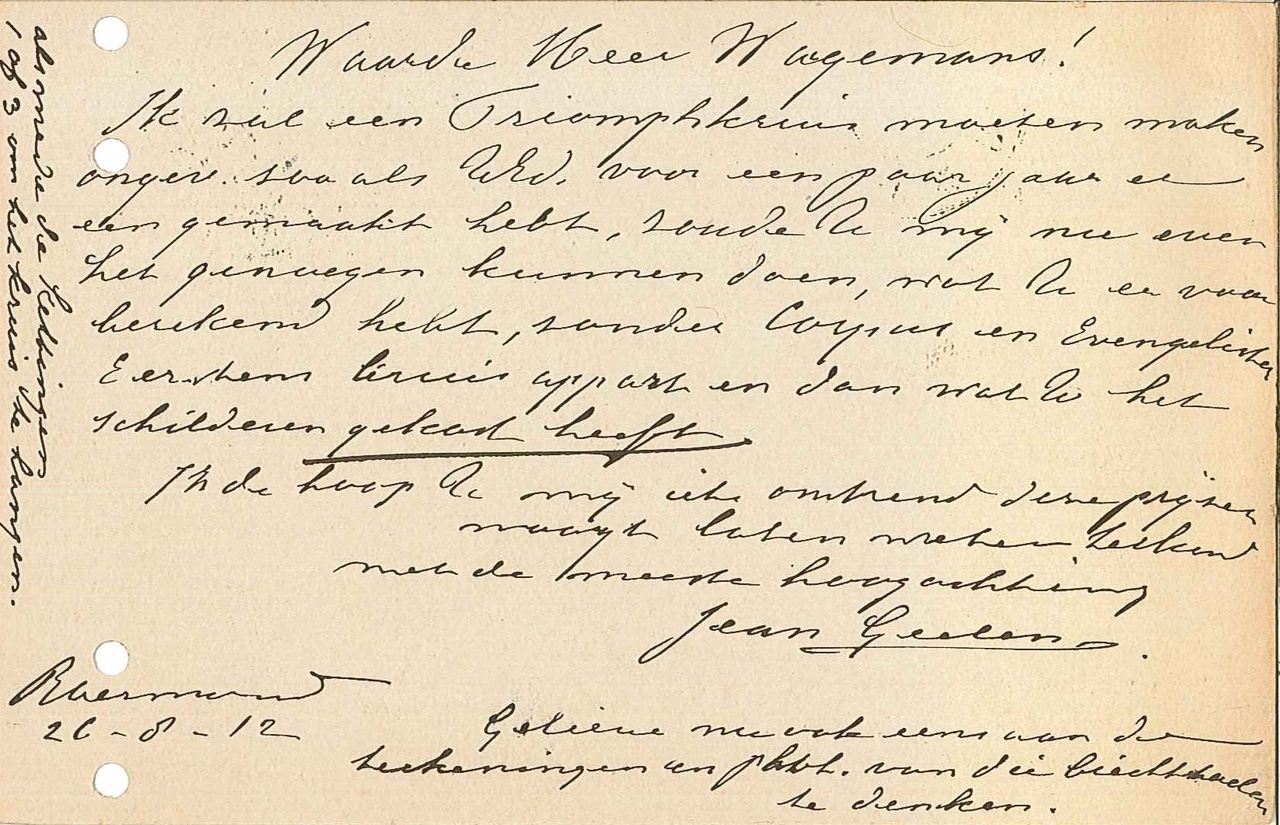 Waarde Heer Wagemans!
Ik zal een Triomphkruis moeten maken
ongev. zoo als UEd. voor een paar jaar er
een gemaakt hebt, zoude U mij nu even
het genoegen kunnen doen, wat U er voor
berekend hebt, zonder Corpus en Evengelisten
Eerstens Cruis appart en dan wat U het
schilderen gekost heeft
In de hoop U mij iets omtrend deze prijzen
moogt laten weten teekend
met de meeste hoogachting
Jean Geelen
Roermond
26-8-12
Gelieve nu ook eens aan de
teekeningen en phot. van die biechtstoelen
te denken.
alsmede de kettingen
1 of 3 om het kruis op te hangen.